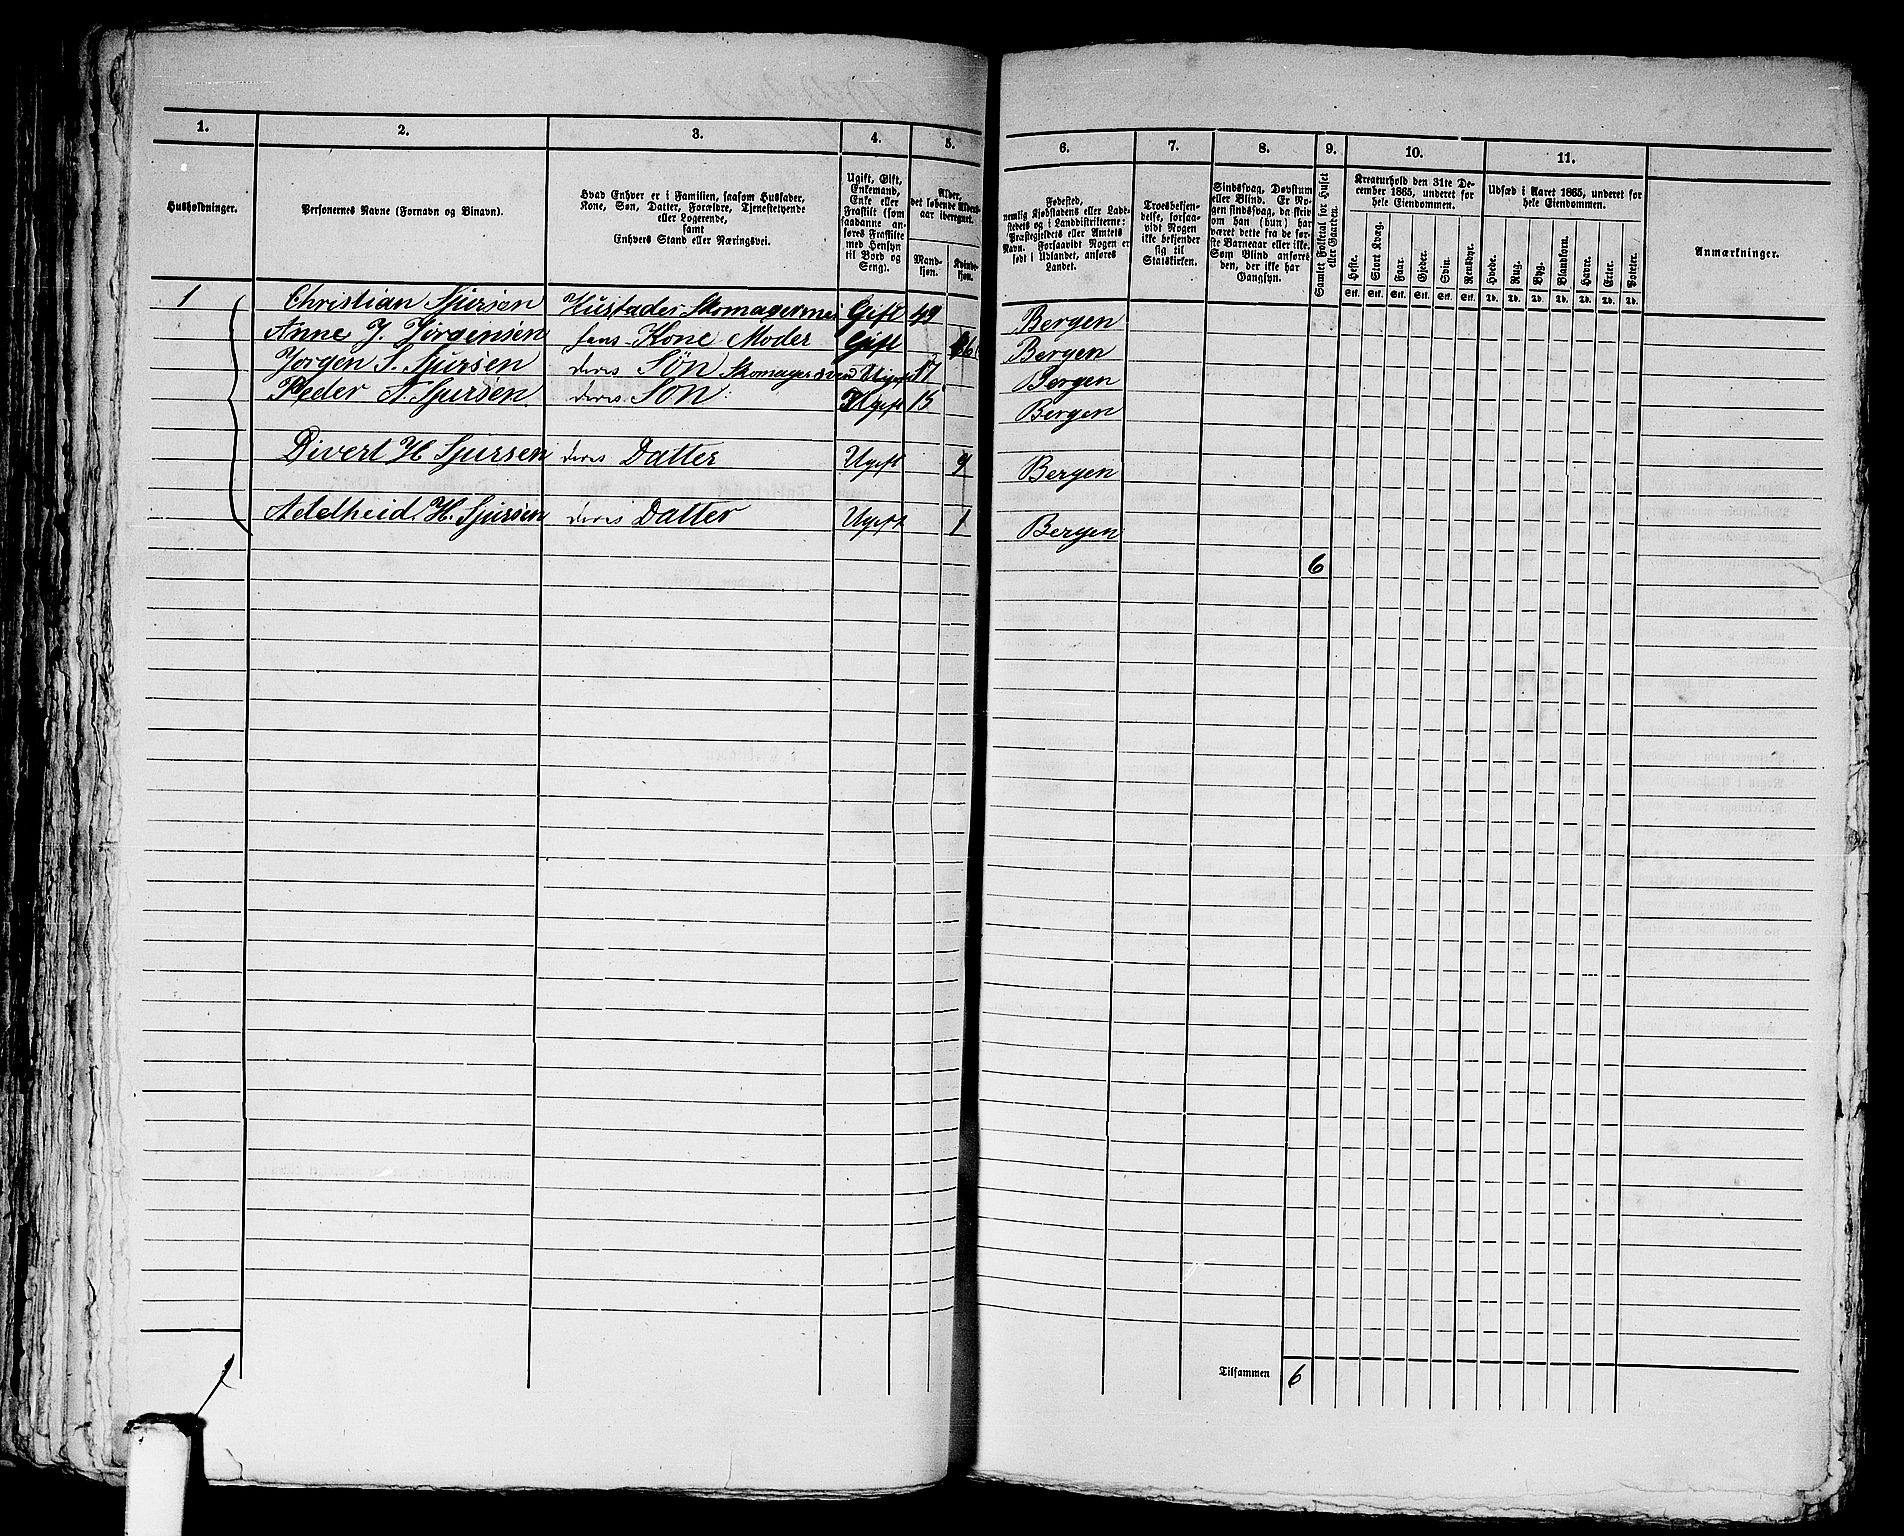 1. 2. 3. 4. 5. 6. 7. 8. 9. 10. 11.
Husholdninger.
Personernes Navne (Fornavn og Binavn).
Hvad Enhver er i Familien, saasom Husfader,
Kone, Søn, Datter, Forældre, Tjenestetyende
eller Logerende,
samt
Enhvers Stand eller Næringsvei.
Ugift, Gift,
Enkemand,
Enke eller
Fraskilt (som
saadanne an-
føres Fraskilte
med Hensyn
til Bord og
Seng).
Alder,
det løbende Alders-
aar iberegnet.
Mand-
kjøn.
Kvinde-
kjøn.
Fødested,
nemlig Kjøbstadens eller Lade-
stedets og i Landdistrikterne:
Præstegjeldets eller Amtets
Navn. Forsaavidt Nogen er
født i Udlandet, anføres
Landet.
Troesbekjen-
delse, forsaa-
vidt Nogen
ikke bekjender
sig til
Statskirken.
Sindssvag, Døvstum
eller Blind. Er No-
gen sindssvag, da skriv
om han (hun) har
været dette fra de før-
ste Barneaar eller ikke.
Som Blind anføres
den, der ikke har
Gangsyn.
Samlet Folketal for Huset
eller Gaarden.
Kreaturhold den 31te De-
cember 1865, underet for
hele Eiendommen.
Heste. Stort Kvæg. Faar. Gjeder. Svin. Rensdyr.
Stk. Stk. Stk. Stk. Stk. Stk.
Udsæd i Aaret 1865, underet for
hele Eiendommen.
Hvede. Rug. Byg. Blandkorn. Havre. Erter. Poteter.
Td. Td. Td. Td. Td. Td. Td.
Anmærkninger.
1 Christian Sjursen Husfader Skomagermes Gift 49 Bergen
Anne J. Jørgensen hans Kone Moder Gift Bergen
Jørgen S. Sjursen deres Søn Skomagersvend Ugift 17 Bergen
Peder A. Sjursen deres Søn Ugift 15 Bergen
Divert H Sjursen deres Datter Ugift 9 Bergen
Adelheid. H. Sjursen deres Datter Ugift 1 Bergen
6
Tilsammen 6
1